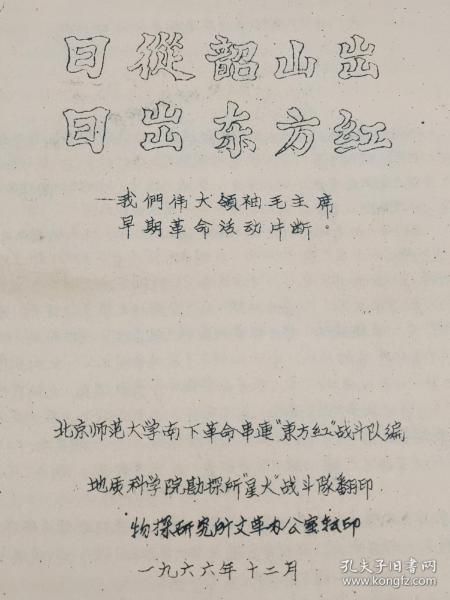 日從韶山出
日出东方紅
—我們伟大領袖毛主席
早期革命活动片断。
北京师范大学南下革命串連"東方红"战斗队編
地质科学院勘探所"星火"战斗隊翻印
物探研究所文革办公室转印
一九六六年十二月
孔夫子旧书网